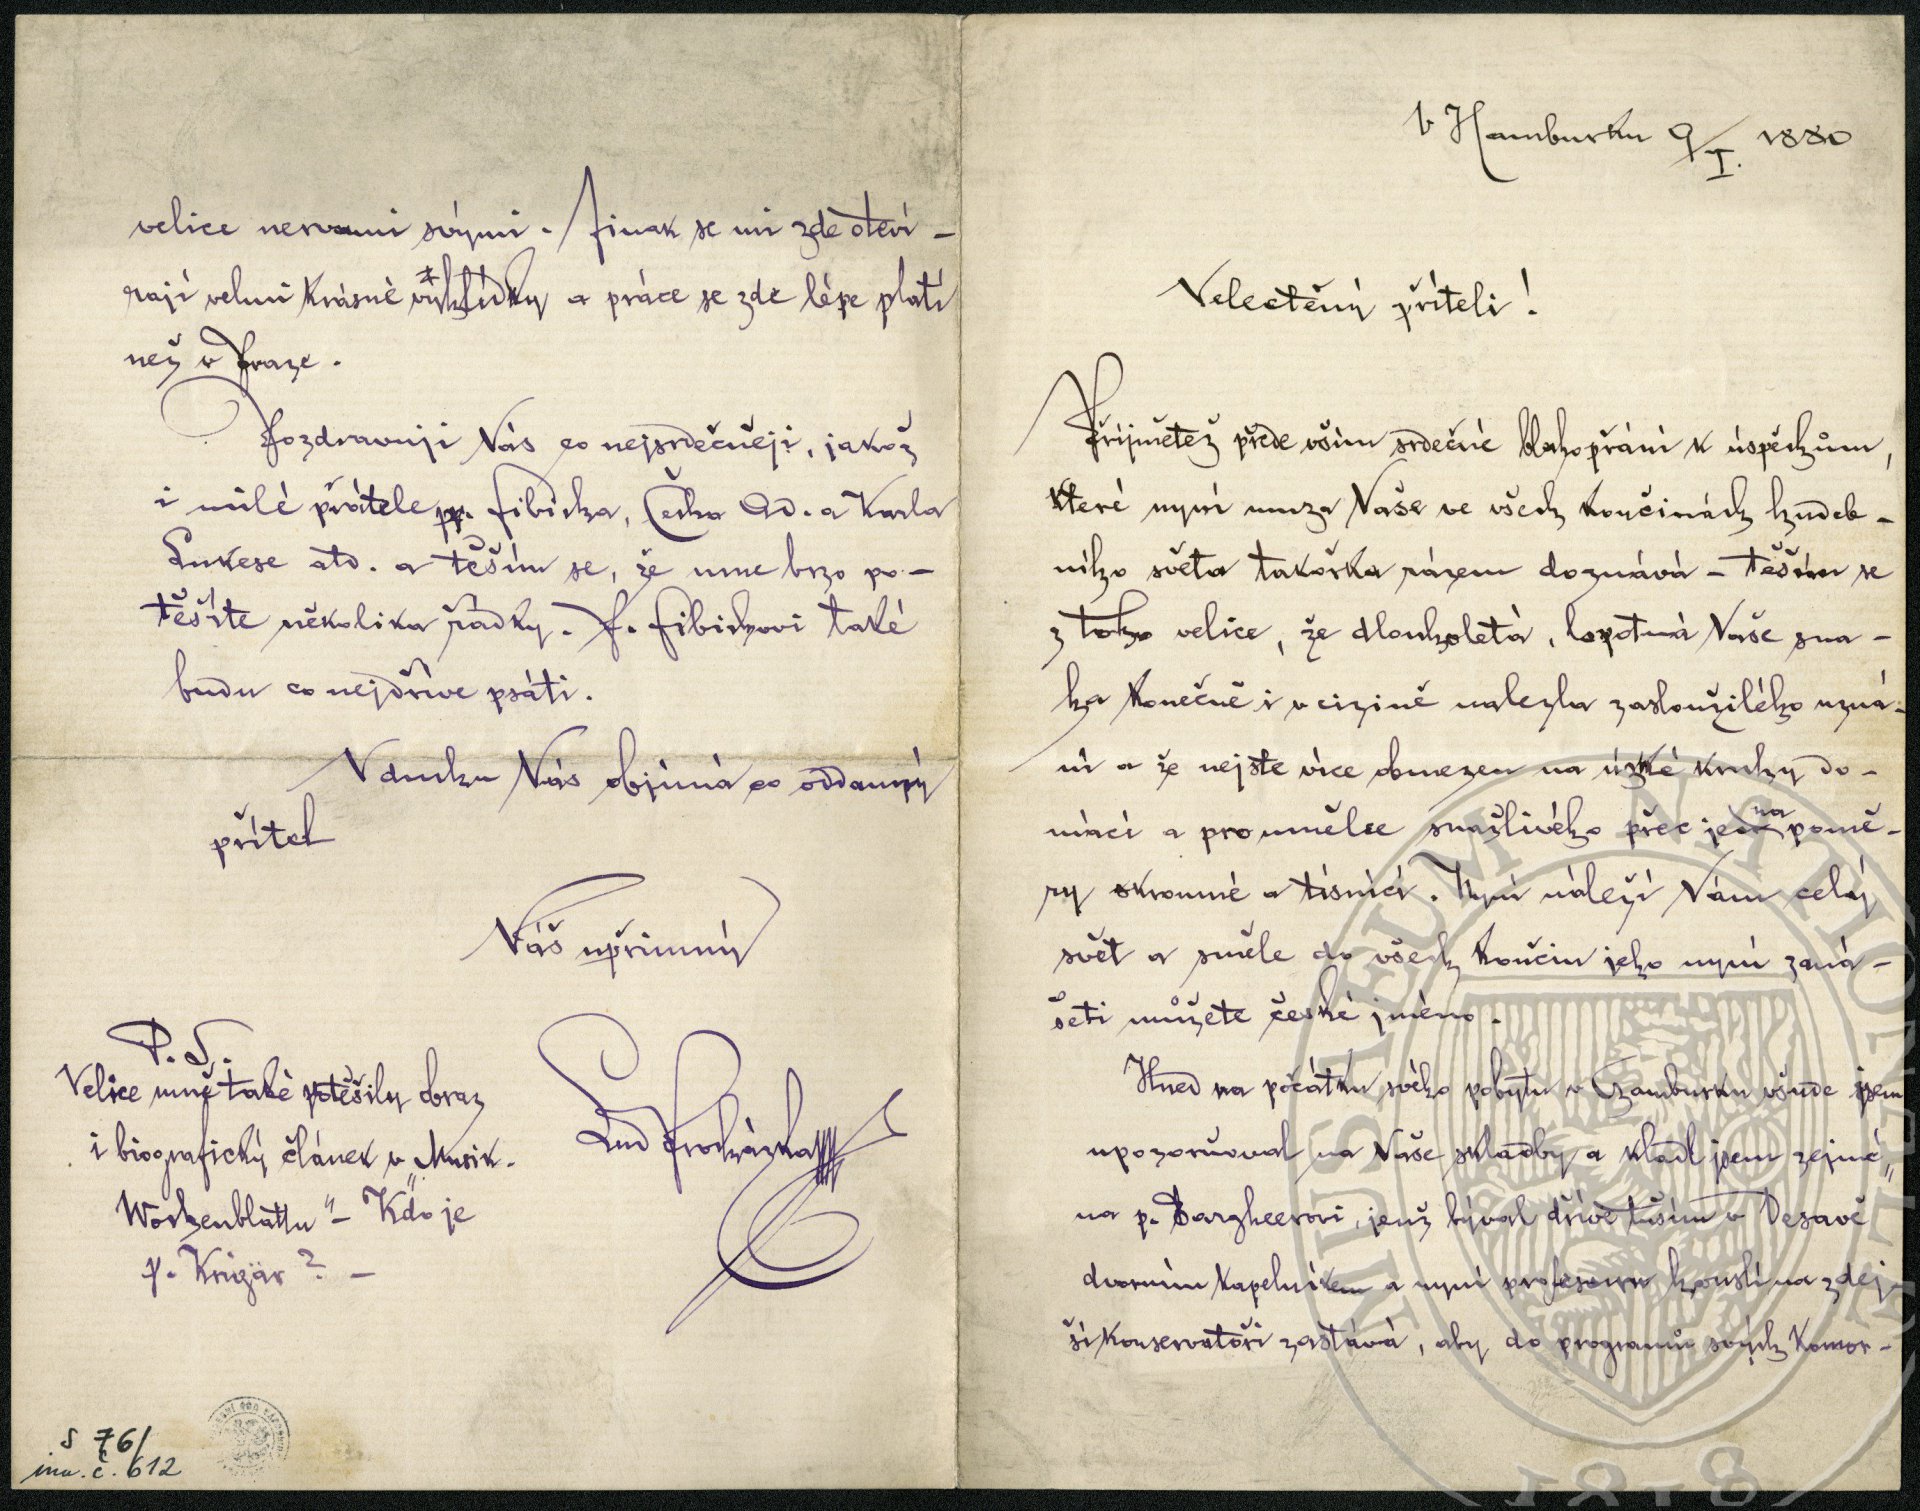 V Hamburku 9/I. 1880
Velectěný příteli!
Přijmětež přede vším srdečné blahopřání k úspěchům,
které nyní musa Vaše ve všech končinách hudeb-
ního světa takořka rázem doznává – těším se
z toho velice, že dlouholetá, lopotná Vaše sna-
ha konečně i v cizině nalezla zasloužilého uzná-
ní a že nejste více obmezen na úzké kruhy do-
mácí a pro umělce snaživého přec jedna pomě-
ry skromné a tísnící. Nyní náleží Vám celý
svět a směle do všech končin jeho nyní zaná-
šeti můžete české jméno.
Hned na počátku svého pobytu v Hamburku všude jsem
upozorňoval na Vaše skladby a kladl jsem zejmé"
na p. Bargheerovi, jenž býval dříve tuším v Desavě
dvorním kapelníkem a nyní professuru houslí na zdej-
ší konservatoři zastává, aby do programů svých komor-
velice nervami svými. Jinak se mi zde oteví-
rají velmi krásné vyhlídky a práce se zde lépe platí
než v Praze.
Pozdravuji Vás co nejsrdečněji, jakož
i milé přátele pp. Fibicha, Čecha Ad. a Karla
Lukese atd. a těším se, že mne brzo po-
těšíte několika řádky. P. Fibichovi také
budu co nejdříve psáti.
V duchu Vás objímá co oddaný
přítel
Váš upřímný
Lud Procházka
P.S.
Velice mně také potěšily obraz
i biografický článek v „Musik.
Wochenblattu" – Kdo je
p. Krigär? –
S 76/
inv. č. 612
MUSEUM NATIONALE
1818